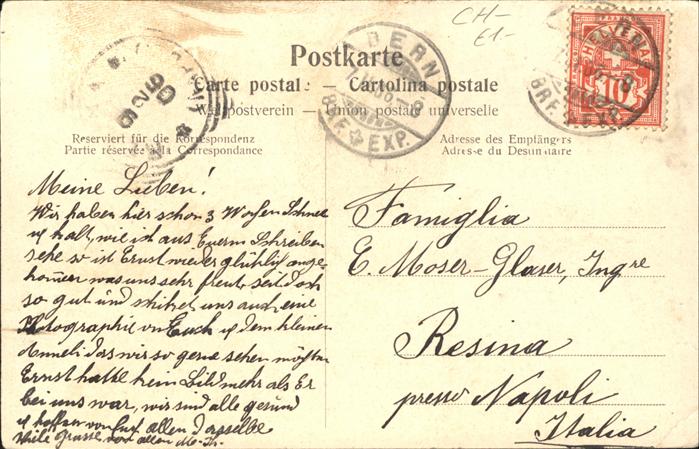 CH-
E1-
Postkarte
Carte postale. Cartolina postale
Weltpostverein — Union postale universelle
Reserviert für die Korrespondenz
Partie réservée à la Correspondance
Adresse des Empfängers
Adresse du Destinataire
BERN
BRF. EXP.
HELVETIA
10
BRF. EXP.
Meine Lieben!
Wir haben hier schon 3 Wochen Schnee
u kalt, wie ich aus Euerm Schreiben
sehe so ist Ernst wieder glücklich ange-
kommen was uns sehr freut seid doch
so gut und schicket uns auch eine
Photographie von Euch u dem kleinen
Anneli das wir so gerne sehen möchten
Ernst hatte kein Bild mehr als Er
bei uns war, wir sind alle gesund
u hoffen von Euch allen dasselbe
viele Grüsse von allen
Famiglia
E. Moser-Glaser, Ingre
Resina
presso Napoli
Italia